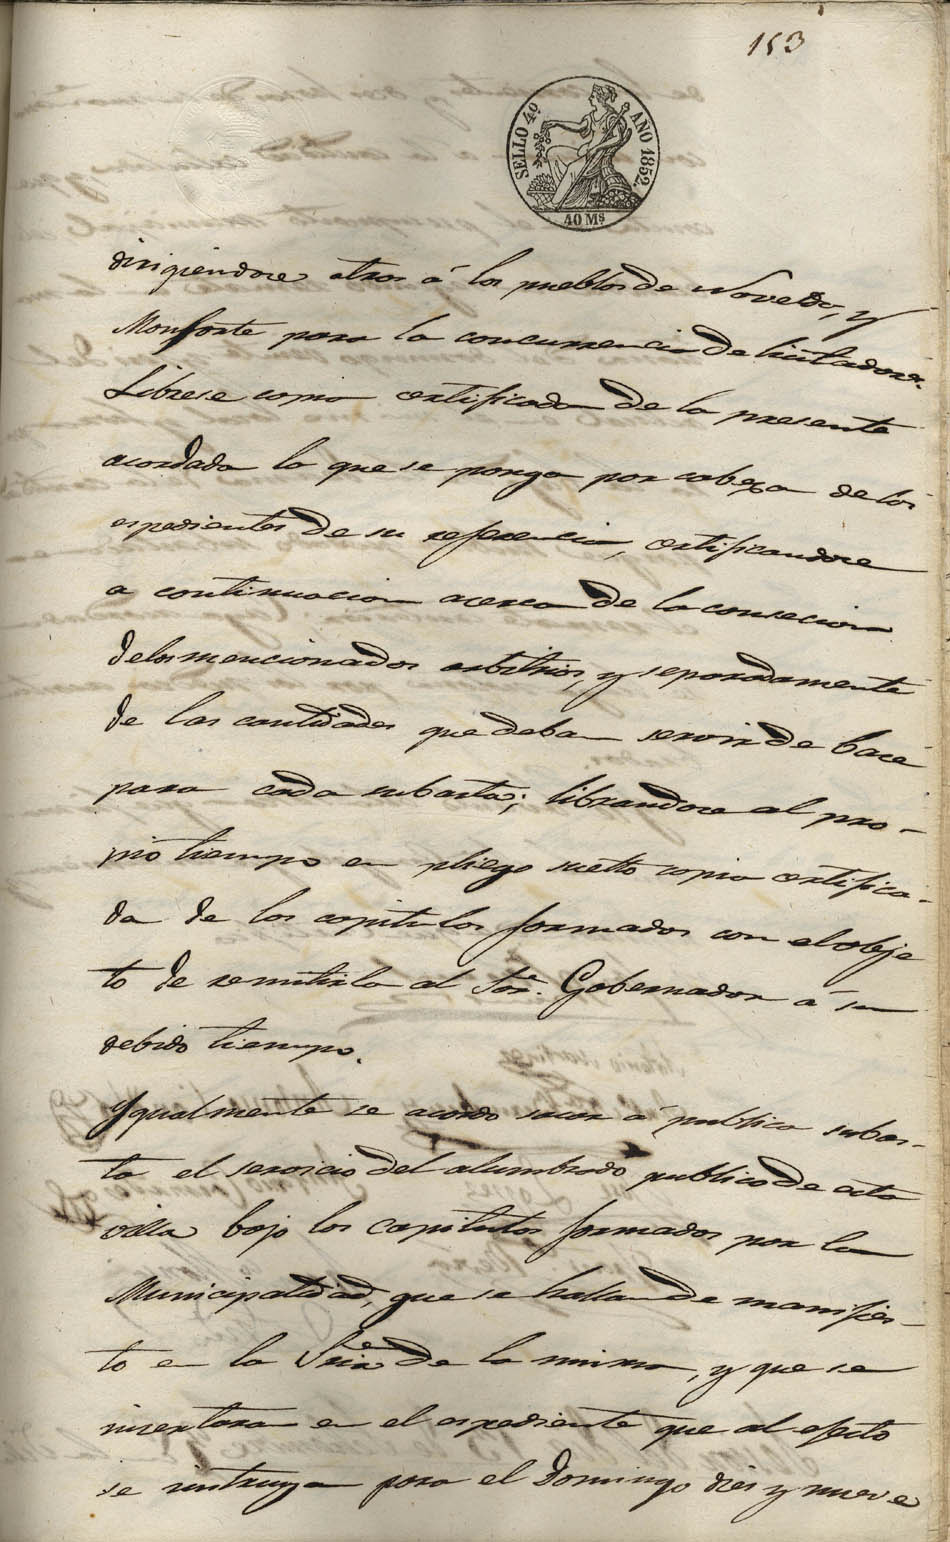 153
SELLO 4º AÑO 1852.
40 Ms
dirigiendose otros á los pueblos de Novelda, y
Monforte para la concurrencia de licitadores.
Librese copia certificada de la presente
acordada la que se ponga por cabeza de los
espedientes de su referencia, certificandose
a continuacion acerca de la consecion
de los mencionados arbitrios, y separadamente
de las cantidades que deban servir de bace
para cada subasta; librandose al pro-
pio tiempo en pliego suelto copia certifica-
da de los capitulos formados con el obje
to de remitirla al Sor. Gobernador á su
debido tiempo.
Ygualmente se acordo sacar á publica subas-
ta el servicio del alumbrado publico de esta
villa bajo los capitulos formados por la
Municipalidad, que se hallan de manifies-
to en la Sria de la misma, y que se
insertara en el espediente que al efecto
se instruya para el Domingo dies y nueve